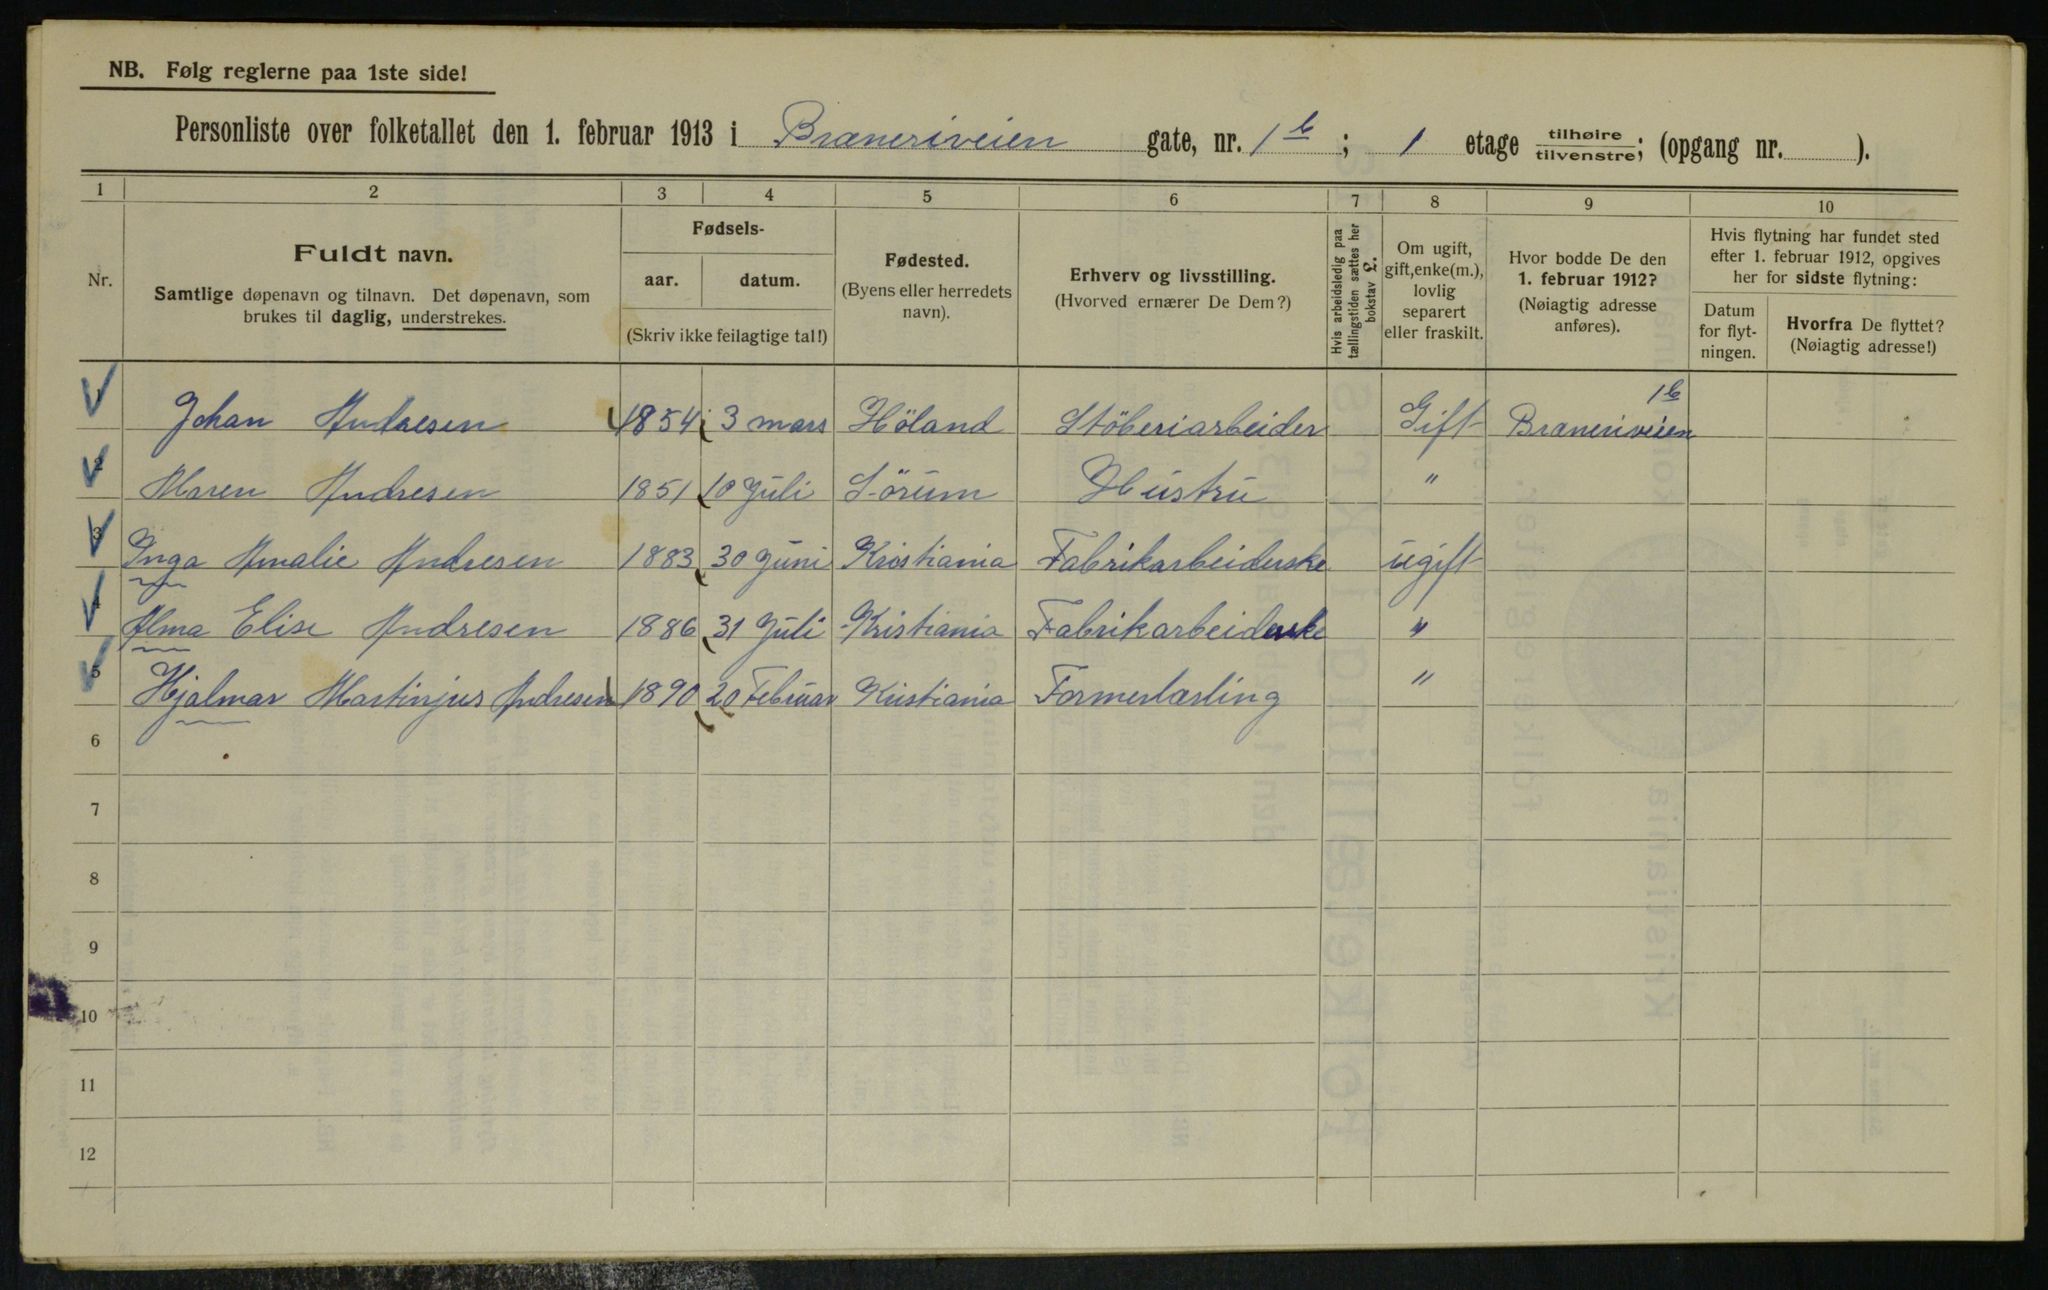 NB. Følg reglerne paa 1ste side!
Personliste over folketallet den 1. februar 1913 i Braneriveien gate, nr. 1 b ; 1 etage tilhøire/tilvenstre; (opgang nr. ).
1 2 3 4 5 6 7 8 9 10
Nr.
Fuldt navn.
Samtlige døpenavn og tilnavn. Det døpenavn, som
brukes til daglig, understrekes.
Fødsels-
aar. datum.
(Skriv ikke feilagtige tal!)
Fødested.
(Byens eller herredets
navn).
Erhverv og livsstilling.
(Hvorved ernærer De Dem?)
Hvis arbeidsledig paa
tællingstiden sættes her
bokstav £.
Om ugift,
gift, enke(m.),
lovlig
separert
eller fraskilt.
Hvor bodde De den
1. februar 1912?
(Nøiagtig adresse
anføres).
Hvis flytning har fundet sted
efter 1. februar 1912, opgives
her for sidste flytning:
Datum
for flyt-
ningen.
Hvorfra De flyttet?
(Nøiagtig adresse!)
1 Johan Andresen 1854 3 mars Höland Stöberiarbeider Gift Braneriveien 1b
2 Maren Andresen 1851 10 Juli Sörum Hustru "
3 Inga Amalie Andresen 1883 30 Juni Kristiania Fabrikarbeiderske ugift
4 Alma Elise Andresen 1886 31 Juli Kristiania Fabrikarbeiderske "
5 Hjalmar Martinjus Andresen 1890 20 Februar Kristiania Formerlærling "
6
7
8
9
10
11
12